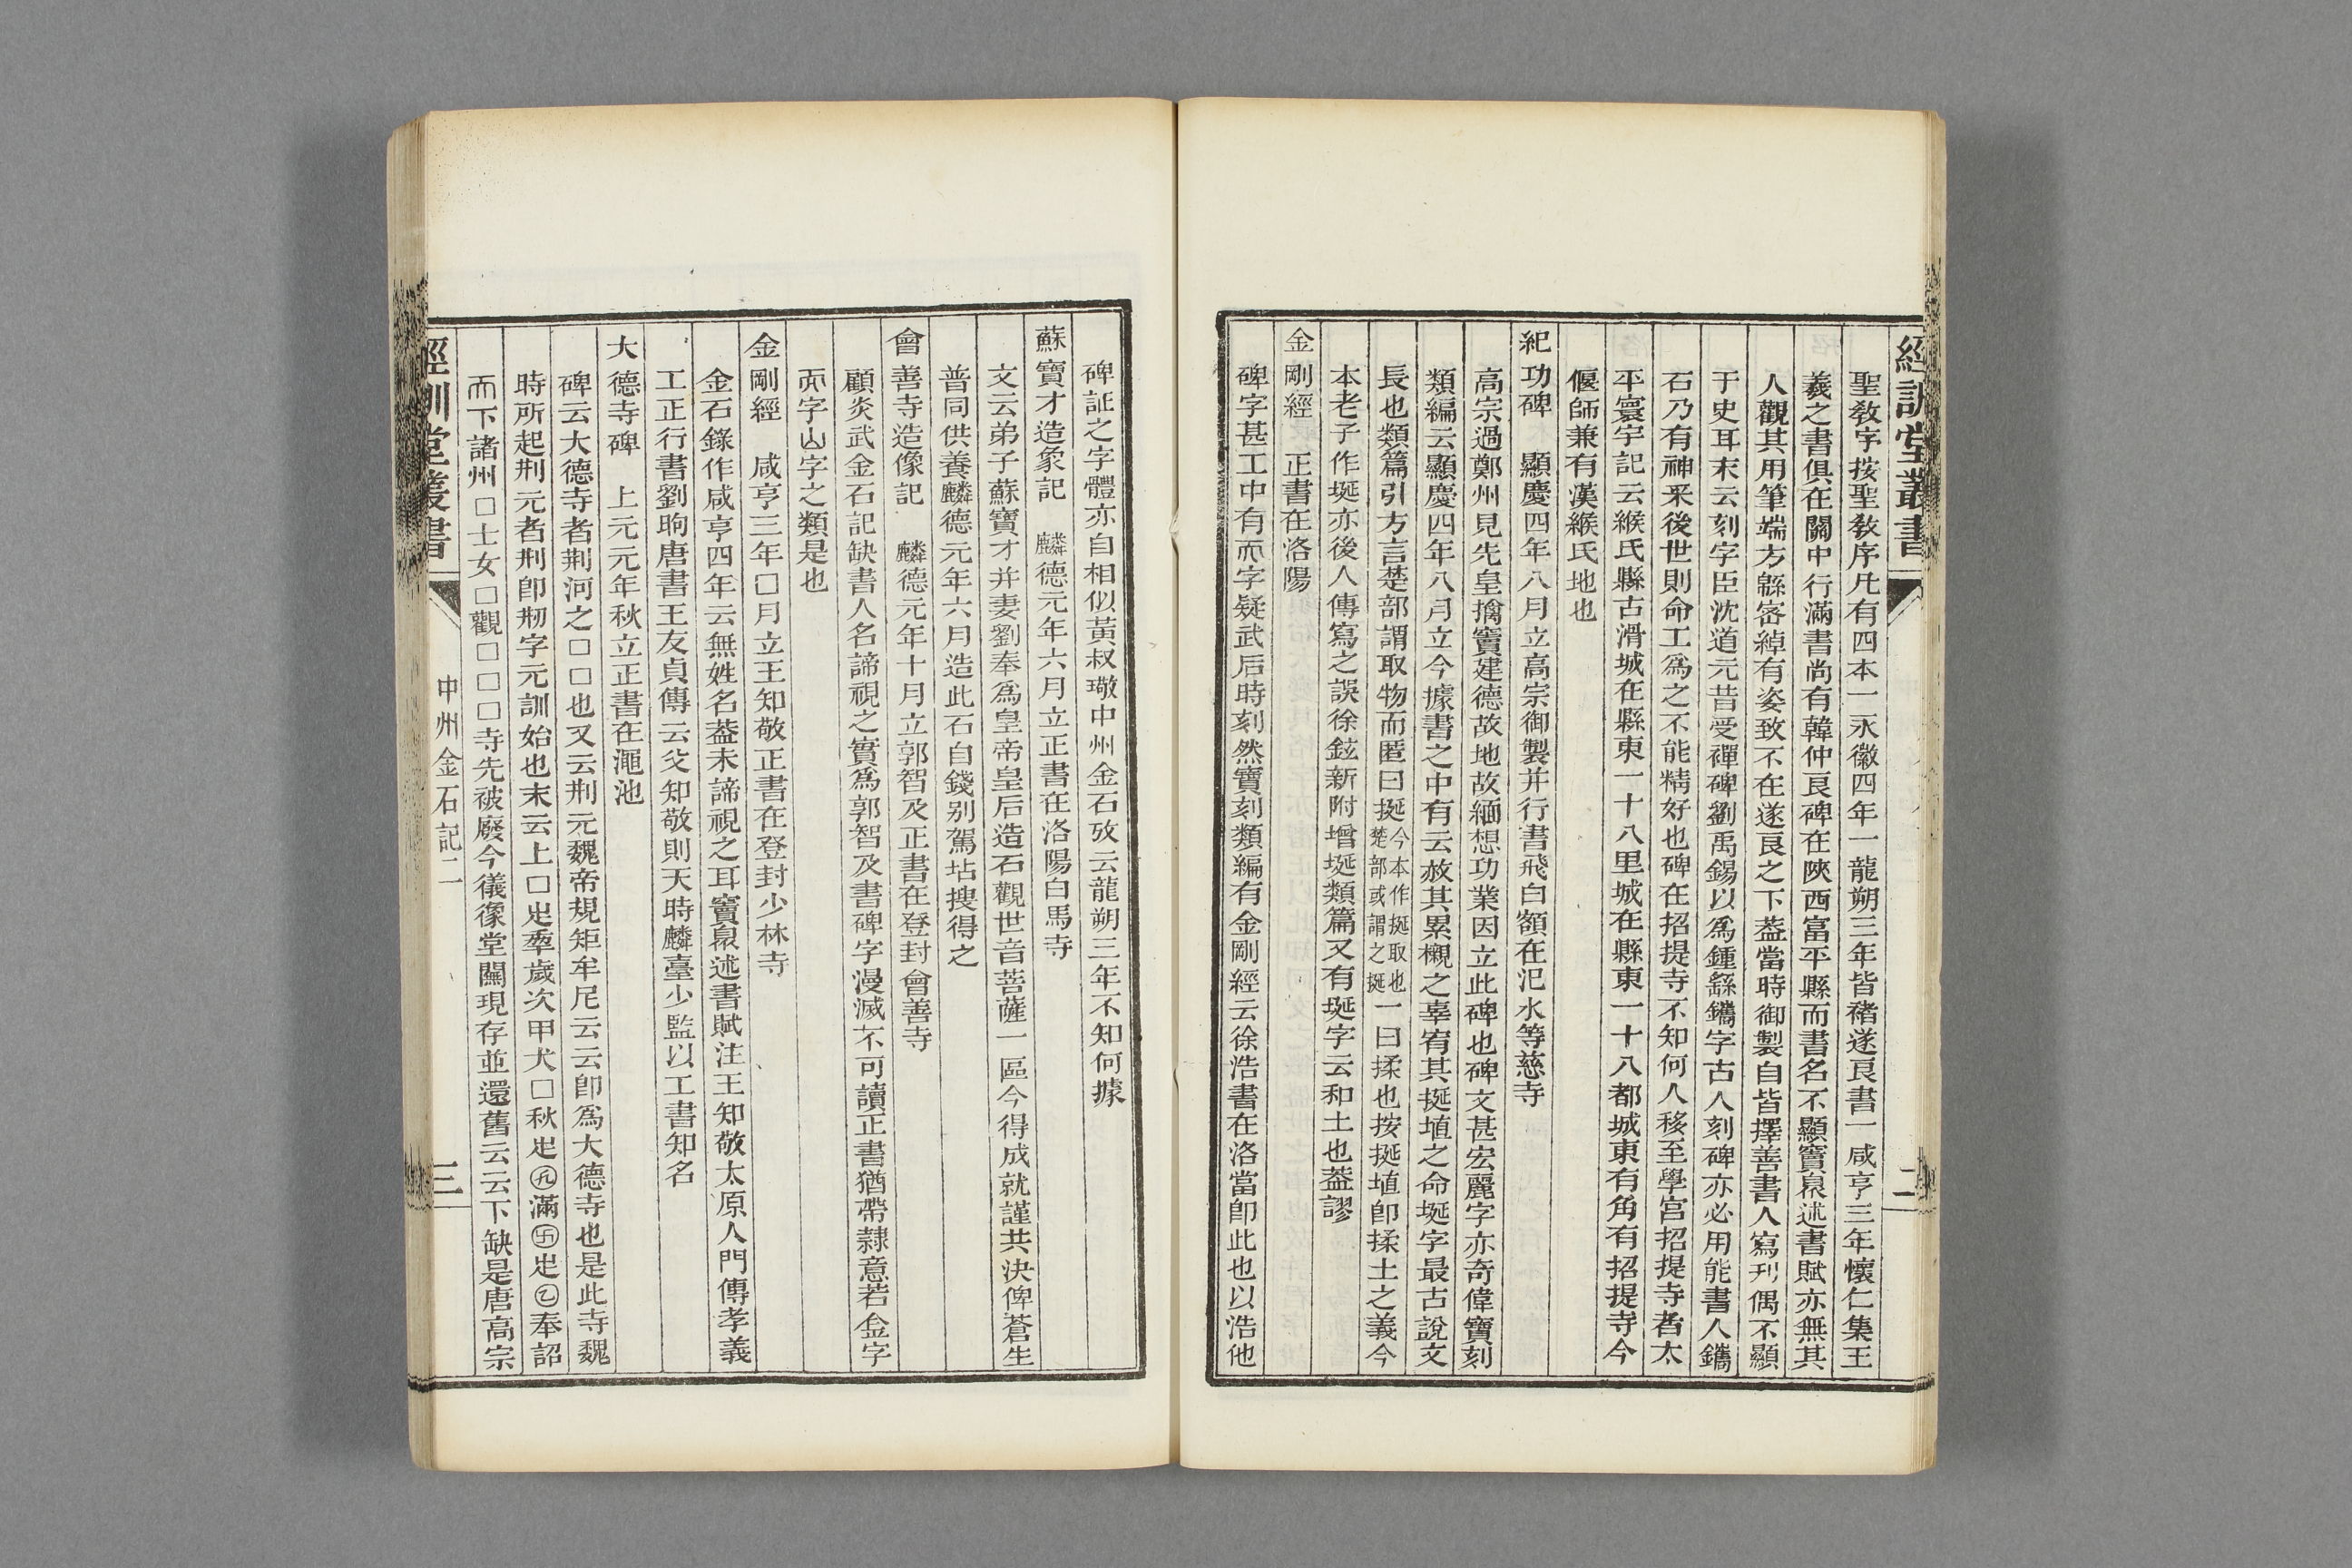 經訓堂叢書
二
聖敎字按聖敎序凡有四本一永徽四年一龍朔三年皆褚遂良書一咸亨三年懷仁集王
羲之書俱在關中行滿書尚有韓仲良碑在陝西富平縣而書名不顯竇臮述書賦亦無其
人觀其用筆端方緜密綽有姿致不在遂良之下葢當時御製自皆擇善書人寫刊偶不顯
于史耳末云刻字臣沈道元昔受禪碑劉禹錫以爲鍾繇鐫字古人刻碑亦必用能書人鐫
石乃有神采後世則命工爲之不能精好也碑在招提寺不知何人移至學宫招提寺者太
平寰宇記云緱氏縣古滑城在縣東一十八里城在縣東一十八都城東有角有招提寺今
偃師兼有漢緱氏地也
紀功碑　顯慶四年八月立高宗御製并行書飛白額在汜水等慈寺
高宗過鄭州見先皇擒竇建德故地故緬想功業因立此碑也碑文甚宏麗字亦奇偉寶刻
類編云顯慶四年八月立今據書之中有云赦其累櫬之辜宥其挻埴之命埏字最古說文
長也類篇引方言楚部謂取物而匿曰挻今本作挻取也楚部或謂之挻一曰揉也按挻埴卽揉土之義今
本老子作埏亦後人傳寫之誤徐鉉新附增埏類篇又有埏字云和土也葢謬
金剛經　正書在洛陽
碑字甚工中有而字疑武后時刻然寶刻類編有金剛經云徐浩書在洛當卽此也以浩他
碑証之字體亦自相似黃叔璥中州金石攷云龍朔三年不知何據
蘇寶才造象記　麟德元年六月立正書在洛陽白馬寺
文云弟子蘇寶才并妻劉奉爲皇帝皇后造石觀世音菩薩一區今得成就謹共決俾蒼生
普同供養麟德元年六月造此石自錢别駕坫搜得之
會善寺造像記　麟德元年十月立郭智及正書在登封會善寺
顧炎武金石記缺書人名諦視之實爲郭智及書碑字漫滅不可讀正書猶帶隸意若金字
而字山字之類是也
金剛經　咸亨三年□月立王知敬正書在登封少林寺
金石錄作咸亨四年云無姓名葢未諦視之耳竇臮述書賦注王知敬太原人門傳孝義
工正行書劉昫唐書王友貞傳云父知敬則天時麟臺少監以工書知名
大德寺碑　上元元年秋立正書在澠池
碑云大德寺者荆河之□□也又云荆元魏帝規矩牟尼云云卽爲大德寺也是此寺魏
時所起荆元者荆卽刱字元訓始也末云上□㞢𡕀歲次甲犬□秋㞢㊈滿卍㞢乙奉詔
而下諸州□士女□觀□□□寺先被廢今㣥像堂闕現存並還舊云云下缺是唐高宗
經訓堂叢書
中州金石記二
三